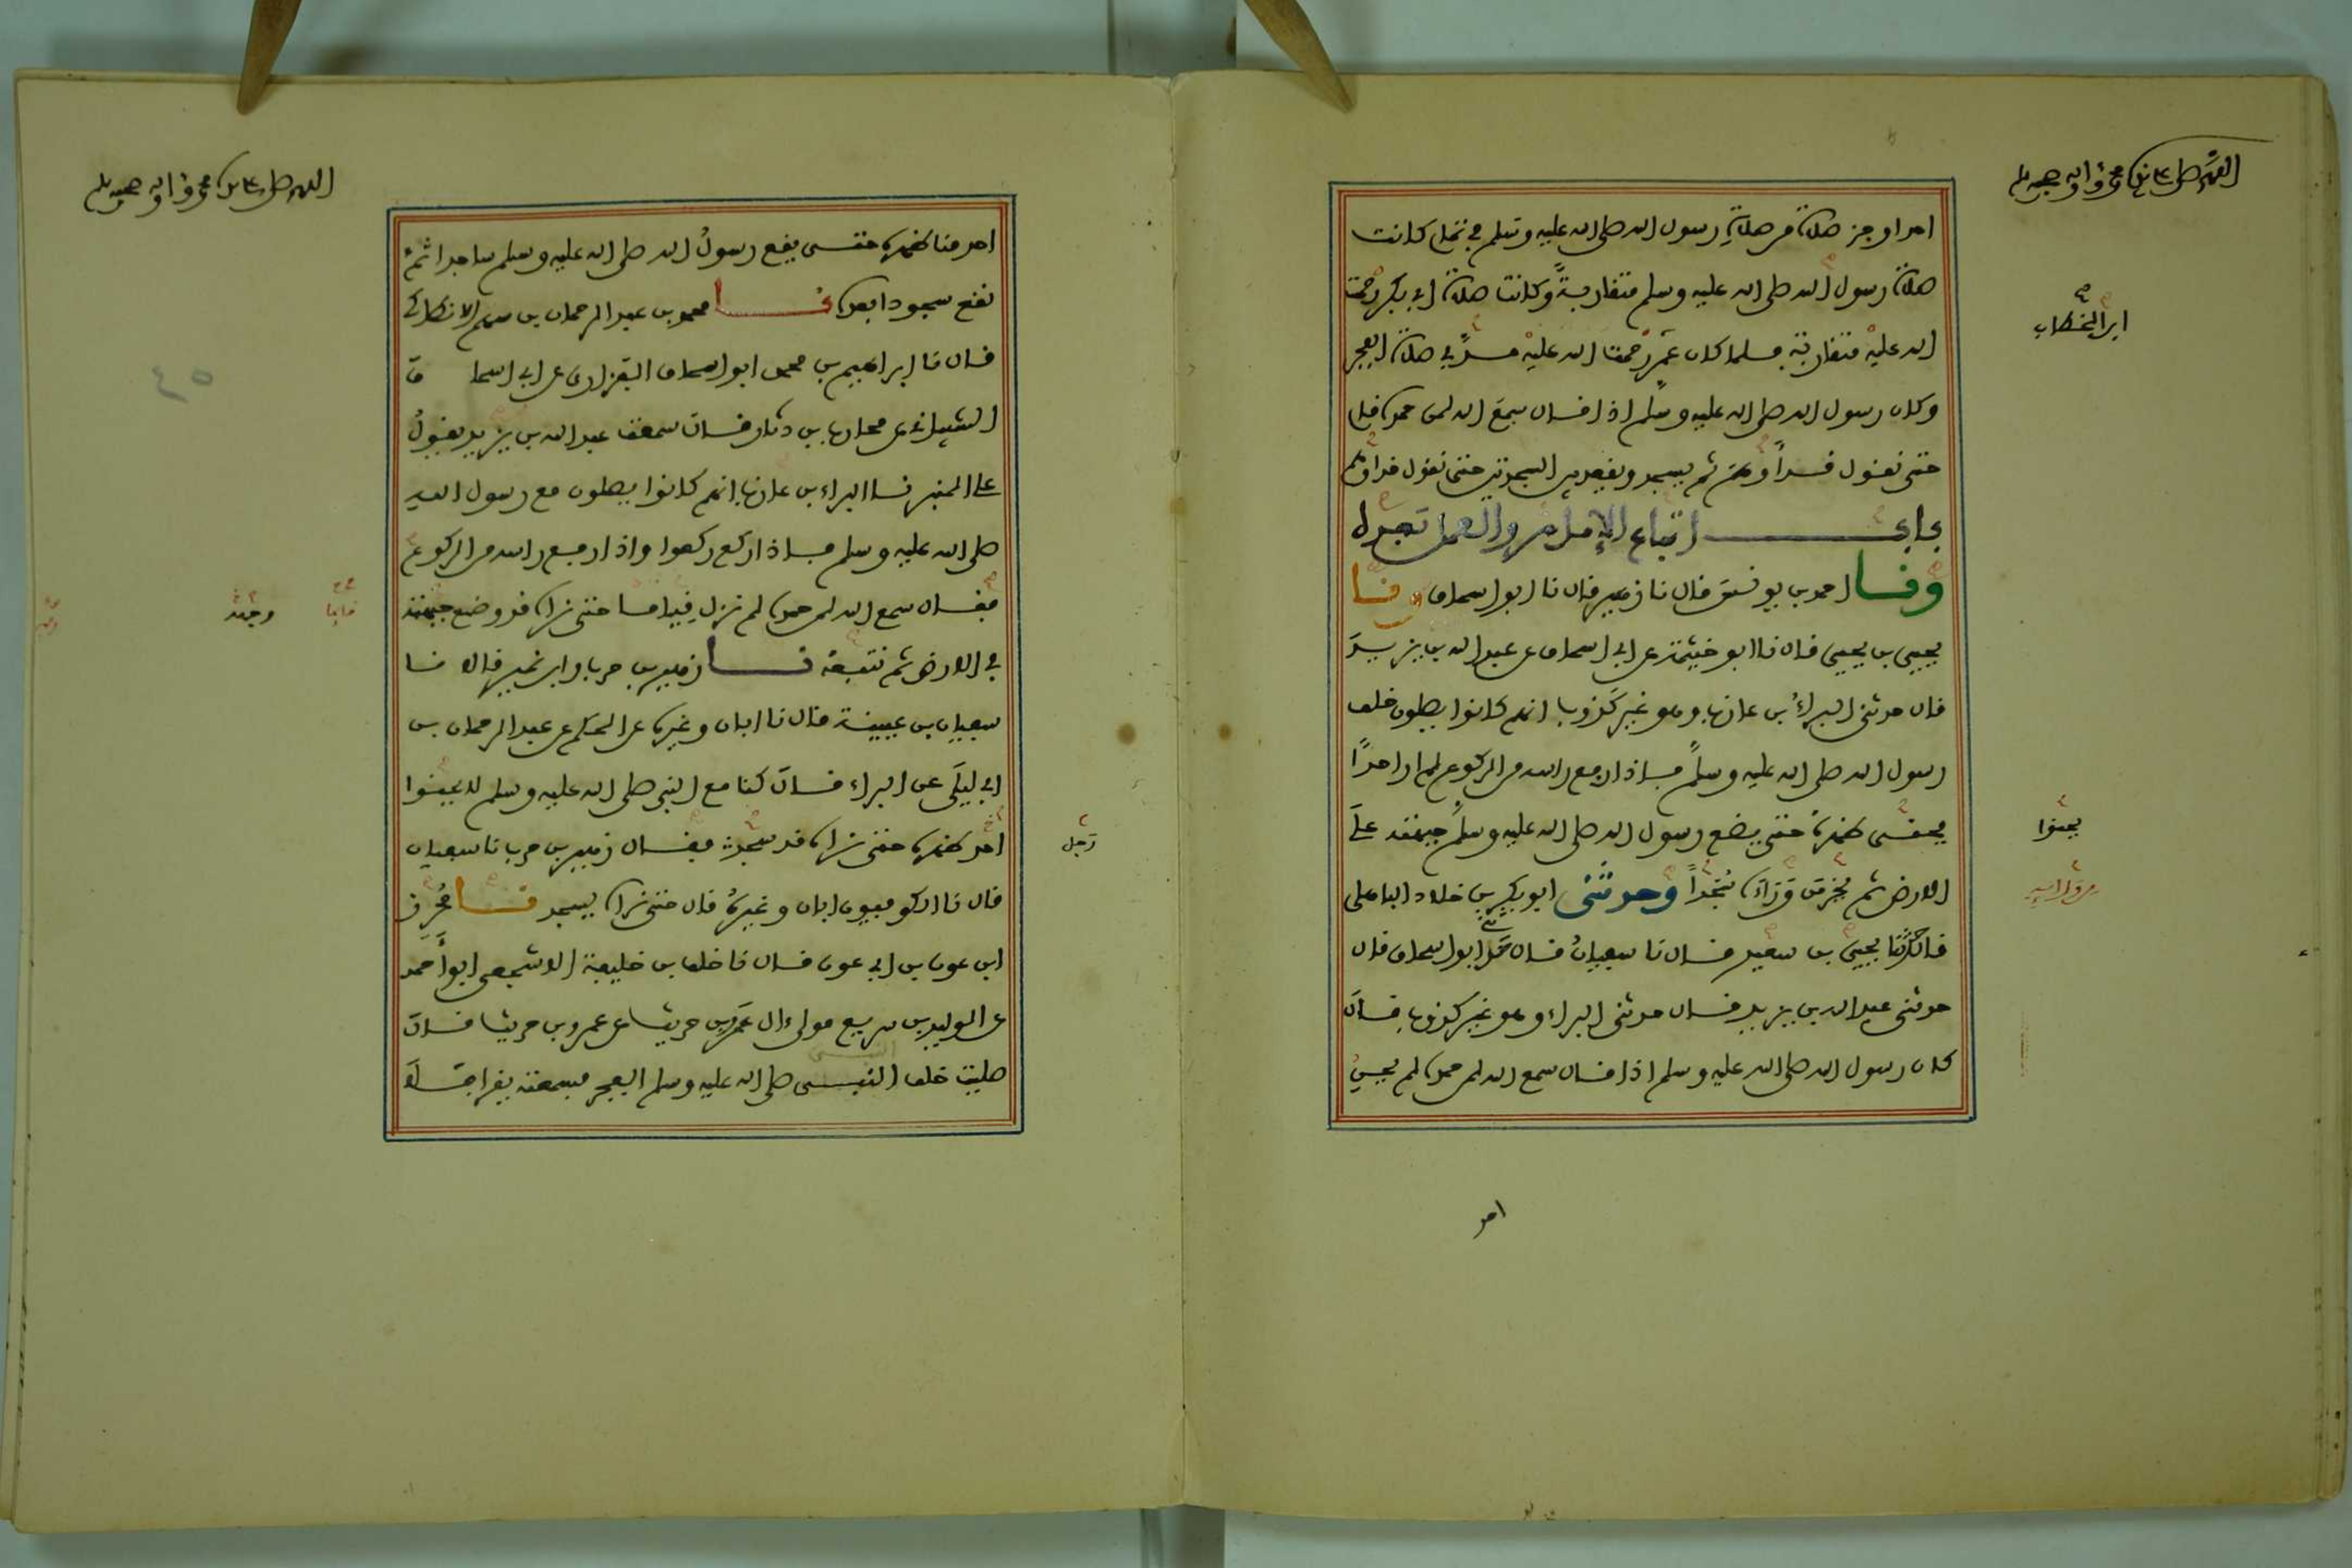 اللهم صل على سيدنا محمد وآله وصحبه وسلم
احدا اوجز صلاة من صلاة رسول الله صلى الله عليه وسلم في تمام كانت
صلاة رسول الله صلى الله عليه وسلم متقاربة وكانت صلاة ابي بكر رحمت
الله عليه متقاربة فلما كان عمر رحمت الله عليه مد في صلاة الفجر
ابن الخطاب
وكان رسول الله صلى الله عليه وسلم اذا قال سمع الله لمن حمده قام
حتى نقول قد أوهم ثم يسجد ويقعد بين السجدتين حتى نقول قد اوهم
باب اتباع الإمام والعمل بعده
ونا احمد بن يونس قال نا زهير قال نا ابو اسحاق ونا
يحيى بن يحيى قال نا ابو خيثمة عن ابي اسحاق عن عبد الله بن يزيد
قال حدثني البراء بن عازب وهو غير كذوب انهم كانوا يصلون خلف
رسول الله صلى الله عليه وسلم فاذا رفع راسه من الركوع لم ار احدًا
يحني ظهره حتى يضع رسول الله صلى الله عليه وسلم جبهته على
يحنوا
الارض ثم يخر من وراءه سُجّدًا وحدثني ابو بكر بن خلاد الباهلي
من وراءه
قال حدثنا يحيى بن سعيد قال نا سفيان قال حدثني ابو اسحاق قال
حدثني عبد الله بن يزيد قال حدثني البراء وهو غير كذوب قال
كان رسول الله صلى الله عليه وسلم اذا قال سمع الله لمن حمده لم يحني
احد
اللهم صل على سيدنا محمد وآله وصحبه وسلم
احد منا ظهره حتى يقع رسول الله صلى الله عليه وسلم ساجدا ثم
نقع سجودا بعده نا محمد بن عبد الرحمان بن سهم الانطاكي
قال نا ابراهيم بن محمد ابو اسحاق الفزاري عن ابي اسحا ق
٤٥
الشيباني عن محارب بن دثار قال سمعت عبد الله بن يزيد يقول
على المنبر نا البراء بن عازب انهم كانوا يصلون مع رسول الله
صلى الله عليه وسلم فاذا ركع ركعوا واذا رفع راسه من الركوع
فقال سمع الله لمن حمده لم نزل قياما حتى نراه قد وضع جبهته
قايما
وجهه
في الارض ثم نتبعه نا زهير بن حرب وابن نمير قالا نا
سفيان بن عيينة قال نا ابان وغيره عن الحكم عن عبد الرحمان بن
ابي ليلى عن البراء قال كنا مع النبي صلى الله عليه وسلم لا يحنوا
احد ظهره حتى نراه قد سجد فقال زهير بن حرب نا سفيان
رجل
قال نا الكوفيون ابان وغيره قال حتى نراه يسجد نا محرز
ابن عون بن ابي عون قال نا خلف بن خليفة الاشجعي ابو أحمد
عن الوليد بن سريع مولى ال عمرو بن حريث عن عمرو بن حريث قال
صليت خلف النبي صلى الله عليه وسلم الفجر فسمعته يقرا فلا